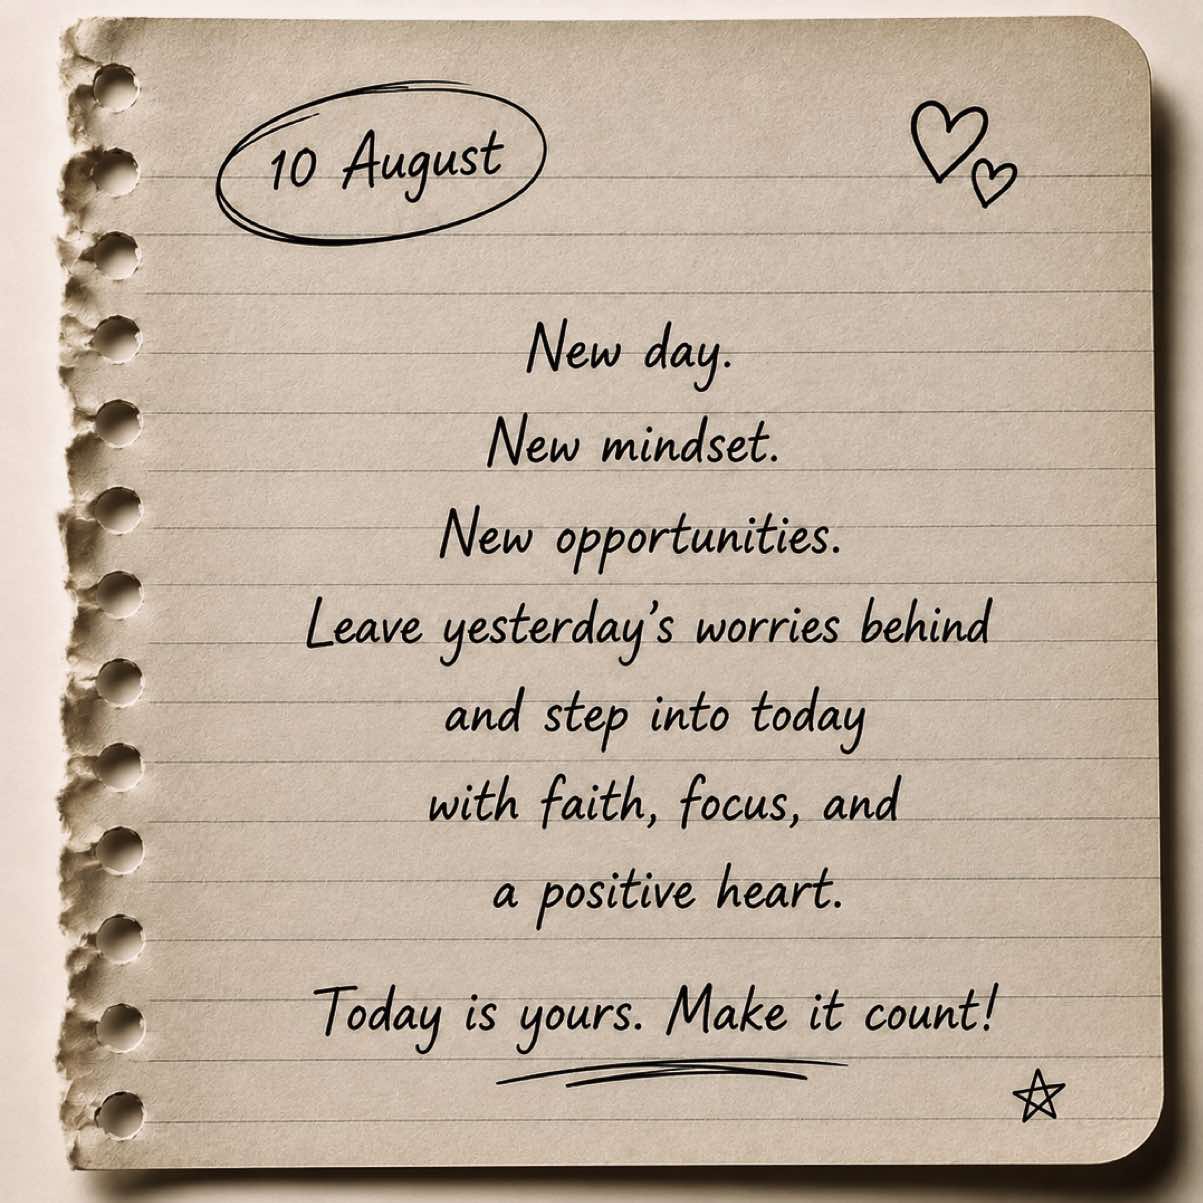 10 August
New day.
New mindset.
New opportunities.
Leave yesterday's worries behind
and step into today
with faith, focus, and
a positive heart.
Today is yours. Make it count!